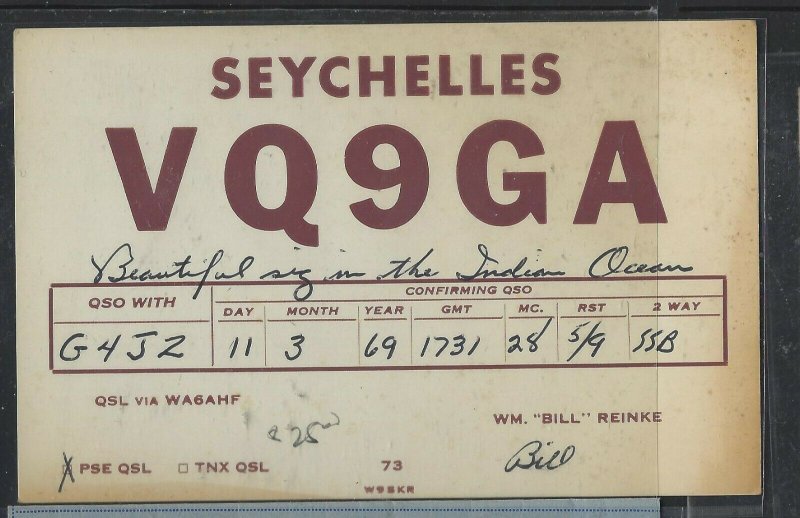 SEYCHELLES
VQ9GA
Beautiful sig in the Indian Ocean
QSO WITH CONFIRMING QSO
DAY MONTH YEAR GMT MC. RST 2 WAY
G4JZ 11 3 69 1731 28 5/9 SSB
QSL VIA WA6AHF
WM. "BILL" REINKE
Bill
X PSE QSL □ TNX QSL 73
W9SKR